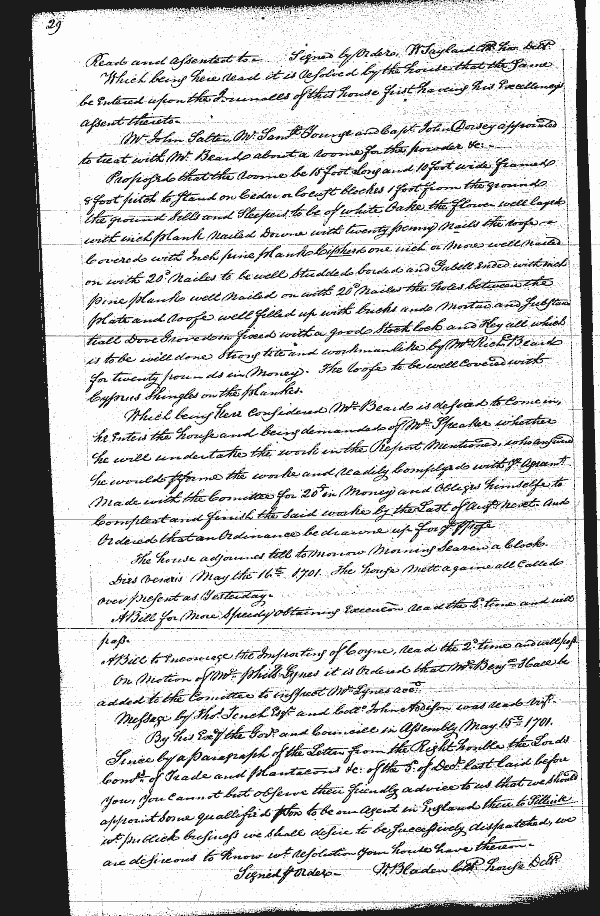 29
Read and assented to Signed by Order, W Tayland Cl. hou: Delts
Which being here read it is resolved by the house that the same
be Entered upon the Journalls of this house first having his Excellencys
assent thereto.
Mr. John Salter, Mr. Samll Younge and Capt. John Dorsey appointed
to treat with Mr. Beard about a roome for the powder &c.
Proposed that the roome be 15 foot Long and 10 foot wide framed
8 foot pitch to stand on Cedar or locust blockes 1 foot from the ground
the ground Sells and Sleepers to be of white Oake the flower well layed
with inch plank nailed Downe with twenty penny nails the roofe
Covered with Inch pine plank one inch or more well nailed
on with 20d nailes to be well studded borded and Gabell Ended with inch
pine planke well nailed on with 20d nailes the holes between the
plate and roofe well filled up with bricks and Mortar and substan
tiall Dore Grooved in fixed with a good Stock lock and Key all which
is to be well done Strong tite and workmanlike by Mr. Richd Beard
for twenty pounds in Money. The roofe to be well Covered with
Cyprus Shingles on the plankes.
Which being here Considered Mr. Beard is desired to Come in,
he Enters the house and being demanded of Mr. Speaker whether
he will undertake the work in the Report Mentioned, who answered
he would pforme the worke and readily Complyed with ye. Agreemt
Made with the Comittee for 20£ in Money and Obliges himselfe to
Compleat and finish the Said worke by the Last of Augt. next. And
Ordered that an Ordinance be drawne up for ye. ppose
The house adjournes till to Morrow Morning Seaven a Clock.
Dies veneris May the 16th. 1701. The house mett againe all Called
over present as Yesterday.
A Bill for More Speedy Obtaining Execucon read the 2d time and will
pass.
A Bill to Encourage the Importing of Coyne, read the 2d time and will pass
On Motion of Mr. Phill: Lynes it is Ordered that Mr. Benja Hall be
added to the Comittee to inspect Mr. Lynes acct.
Message by Tho: Tench Esqr. and Coll. John Addison was read vizt.
By his Exy the Govr. and Councill in Assembly May 15th. 1701.
Since by a Paragraph of the Letter from the Right honble the Lords
Comrs. of Trade and plantacons &c. of the of Decr. last laid before
you, you cannot but observe their friendly advice to us that we should
appoint Some quallified pson to be our Agent in England there to Sollicit
wt. publick business we shall desire to be Successively dispatched, we
are desireous to know wt. resolution your house have thereon.
Signed p Order W. Bladen Cl. house Delts